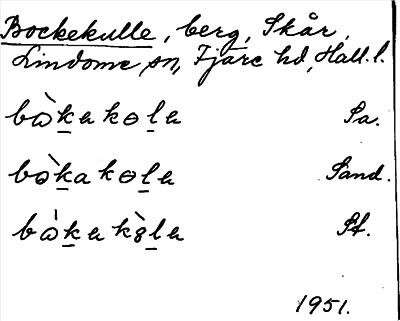 Bockekulle, berg, Skår,
Lindome sn, Fjäre hd, Hall. l.
bòkakola Sa.
bòkakola Sand.
bòkakòla Sf.
1951.